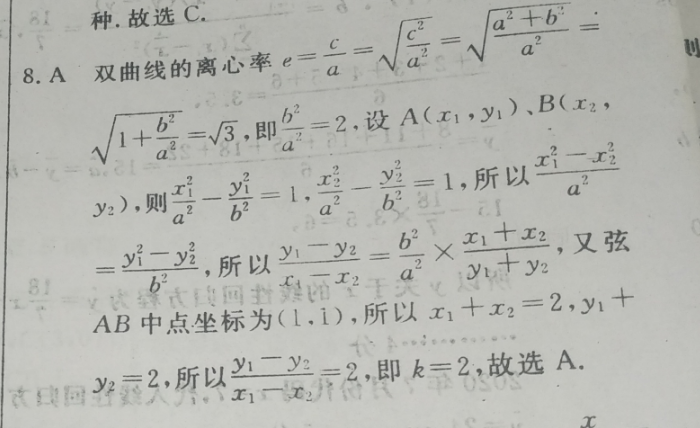 种.故选 C.
8. A 双曲线的离心率 e = c/a = √(c²/a²) = √((a²+b²)/a²) =
√(1+b²/a²) = √3,即 b²/a² = 2,设 A(x₁,y₁)、B(x₂,
y₂),则 x₁²/a² − y₁²/b² = 1, x₂²/a² − y₂²/b² = 1,所以 (x₁²−x₂²)/a²
= (y₁²−y₂²)/b²,所以 (y₁−y₂)/(x₁−x₂) = b²/a² × (x₁+x₂)/(y₁+y₂),又弦
AB 中点坐标为(1,1),所以 x₁+x₂=2,y₁+
y₂=2,所以 (y₁−y₂)/(x₁−x₂) =2,即 k=2,故选 A.
x